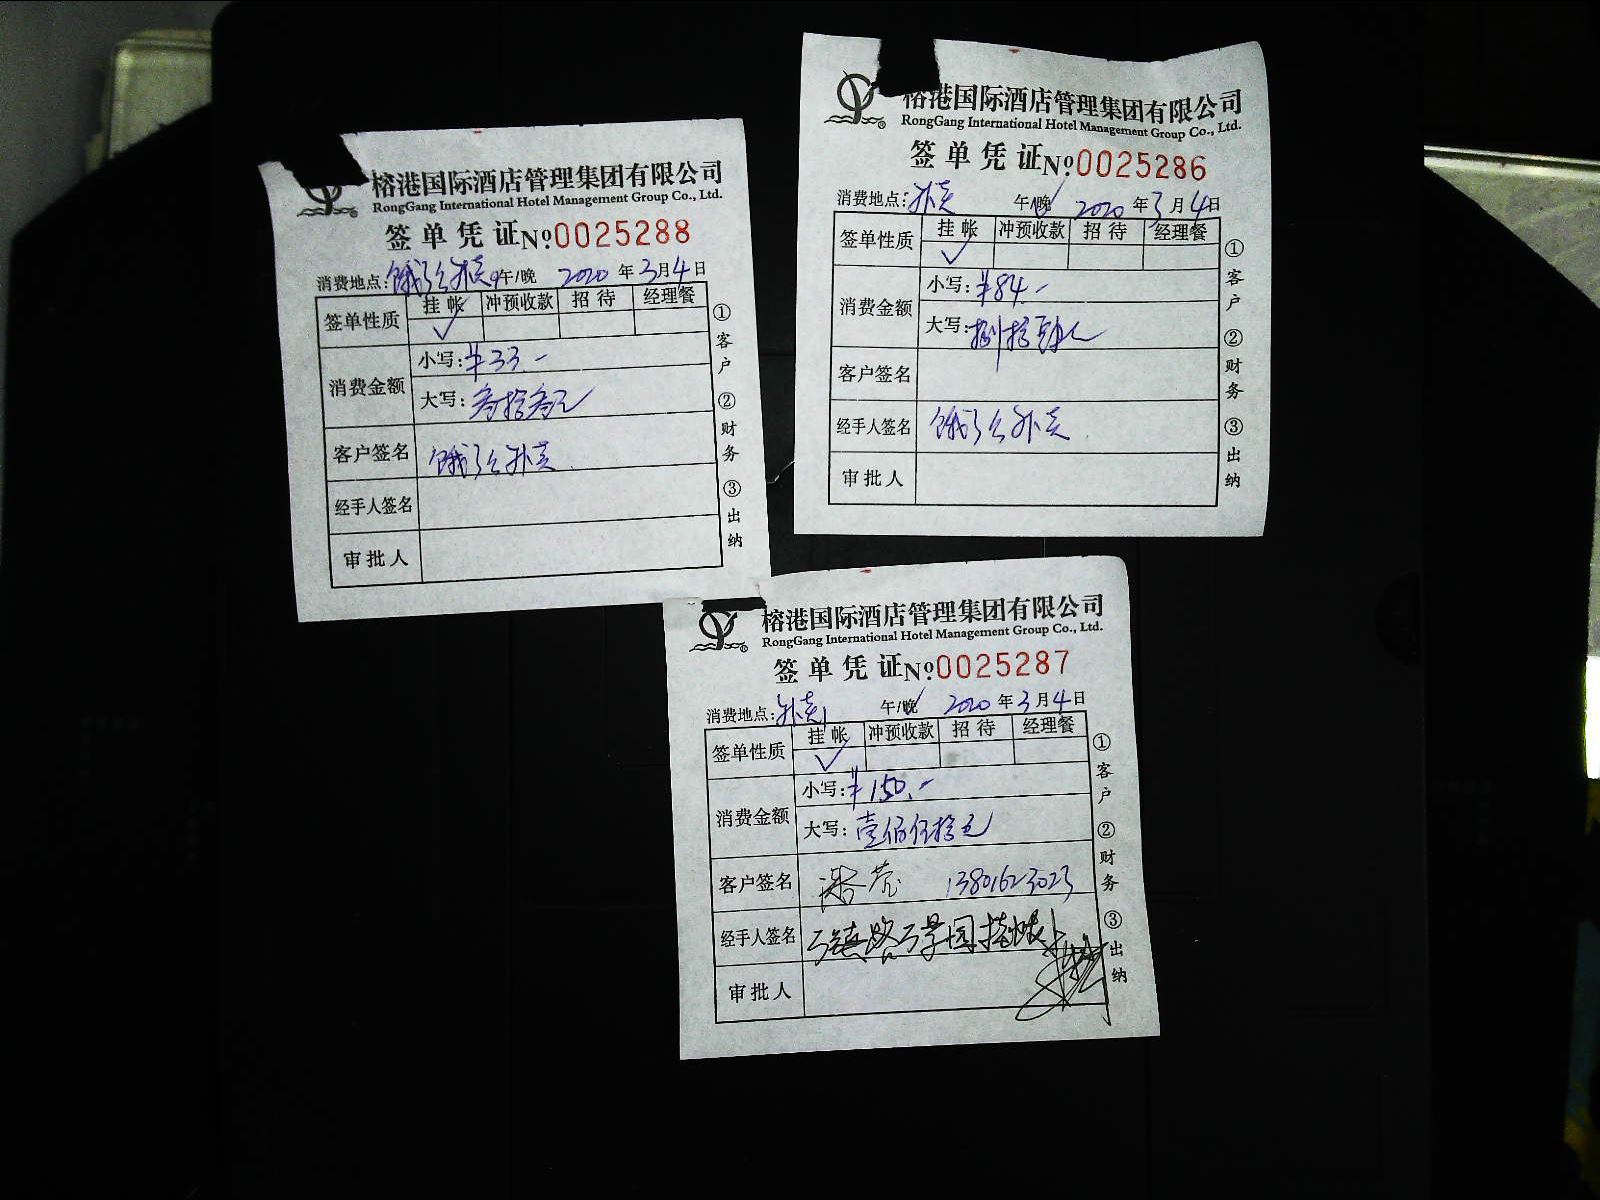 榕港国际酒店管理集团有限公司
RongGang International Hotel Management Group Co., Ltd.
签单凭证 No 0025288
消费地点: 饿了么外卖 午/晚 2020 年 3 月 4 日
签单性质 挂帐 冲预收款 招待 经理餐
✓
消费金额 小写: ¥33.-
大写: 叁拾叁元
客户签名 饿了么外卖
经手人签名
审批人
①客户 ②财务 ③出纳
榕港国际酒店管理集团有限公司
RongGang International Hotel Management Group Co., Ltd.
签单凭证 No 0025286
消费地点: 外卖 午/晚 2020 年 3 月 4 日
签单性质 挂帐 冲预收款 招待 经理餐
✓
消费金额 小写: ¥84.-
大写: 捌拾肆元
客户签名
经手人签名 饿了么外卖
审批人
①客户 ②财务 ③出纳
榕港国际酒店管理集团有限公司
RongGang International Hotel Management Group Co., Ltd.
签单凭证 No 0025287
消费地点: 外卖 午/晚 2020 年 3 月 4 日
签单性质 挂帐 冲预收款 招待 经理餐
✓
消费金额 小写: ¥150.-
大写: 壹佰伍拾元
客户签名 13801623023
经手人签名 万镇路万景园挂帐
审批人
①客户 ②财务 ③出纳